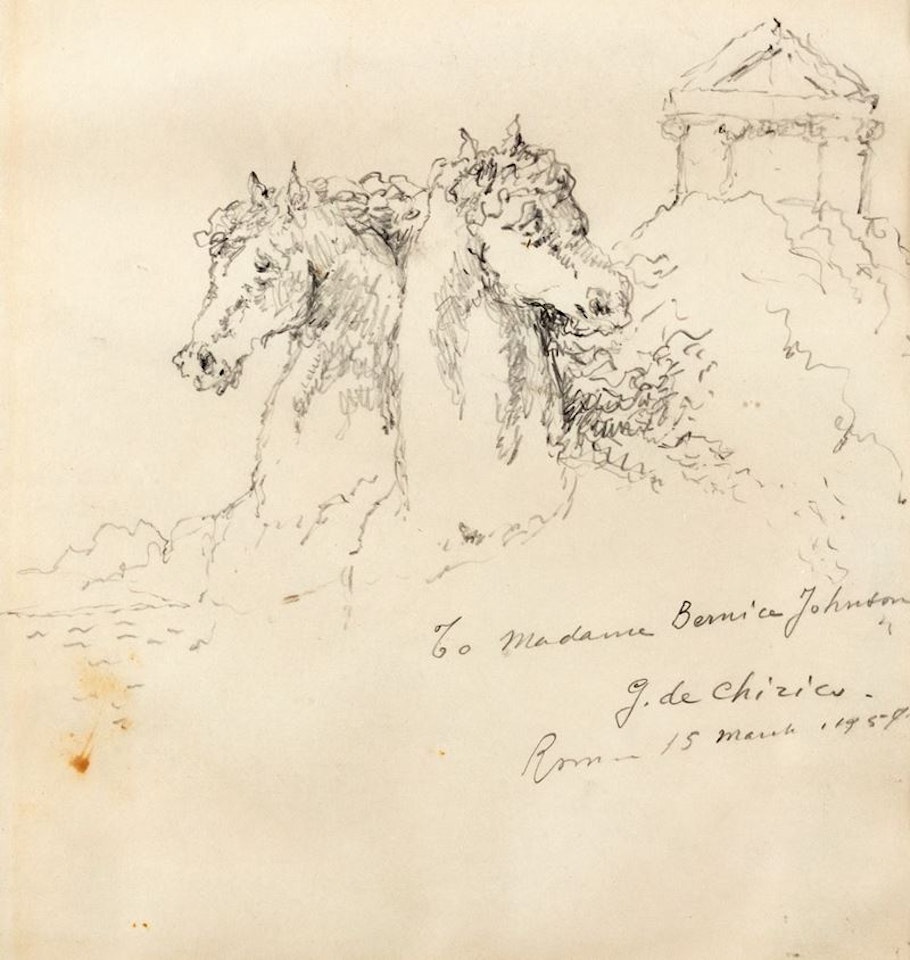 To Madame Bernice Johnson
G. de Chirico.
Roma 15 march